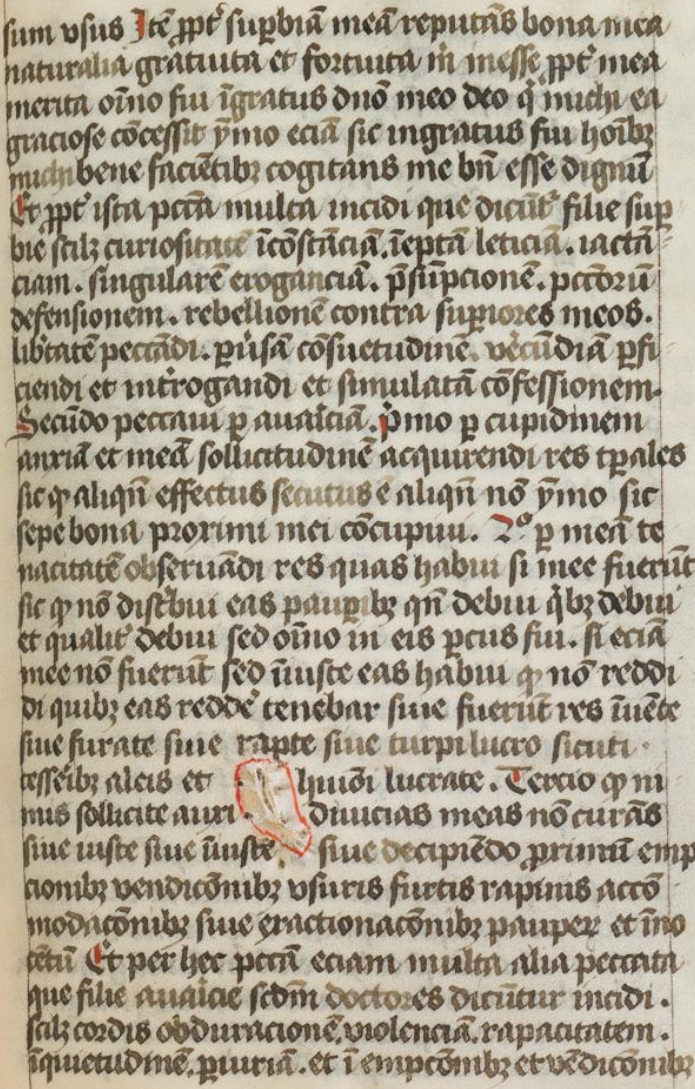 sum vsus Itē ꝓpt̄ suꝑbiā meā reputās bona mea
naturalia gratuita et fortuita m̄ inesse ꝓpt̄ mea
merita oīno fui īgratus dnō meo deo q̄ michi ea
graciose cōcessit ymo eciā sic ingratus fui hoībꝫ
michi bene faciētibꝫ cogitans me bn̄ esse dignū
Et ꝓpt̄ ista pctā multa incidi que dicūt᷑ filie suꝑ
bie scilꝫ curiositatē īcōstāciā. īeptā leticiā. iactā
ciam. singularē eroganciā. p̄sūpcionē. pctōrū
defensionem. rebellionē contra suꝑiores meos.
lib̄tatē peccādi. ꝑuersā cōsuetudinē. vecūdiā ꝓfi
ciendi et int̄rogandi et simulatā cōfessionem.
Secūdo peccaui ꝑ auaīciā. pͥmo ꝑ cupidinem
anxiā et meā sollicitudinē acquirendi res tꝑales
sic ꝙ aliqn̄ effectus secutus ē aliqn̄ nō ymo sic
sepe bona proximi mei cōcupiui. 2º ꝑ meā te
nacitatē obseruādi res quas habui si mee fuerūt
sic ꝙ nō distͥbui eas pauꝑibꝫ qn̄ debui qͥbꝫ debui
et qualit̄ debui sed oīno in eis ꝑcus fui. si eciā
mee nō fuerūt sed īiuste eas habui ꝙ nō reddi
di quibꝫ eas redde᷑ tenebar siue fuerūt res īuēte
siue furate siue rapte siue turpi lucro sicuti
tesseībꝫ aleis et hmōi lucrate. Tercio ꝙ ni
mis sollicite auxi diuicias meas nō curās
siue iuste siue īiuste siue decipiēdo proximū emp
cionibꝫ vendicōnibꝫ vsuris furtis rapinis accō
modacōnibꝫ siue exactionacōnibꝫ pauperꝝ et īno
cētū Et per hec pctā eciam multa alia peccata
que filie auaīcie scdm̄ doctores dicūtur incidi.
scilꝫ cordis obduracionē. violenciā. rapacitatem.
īquietudinē. ꝑiuriā. et ī empcōnibꝫ et vēdicōnibꝫ